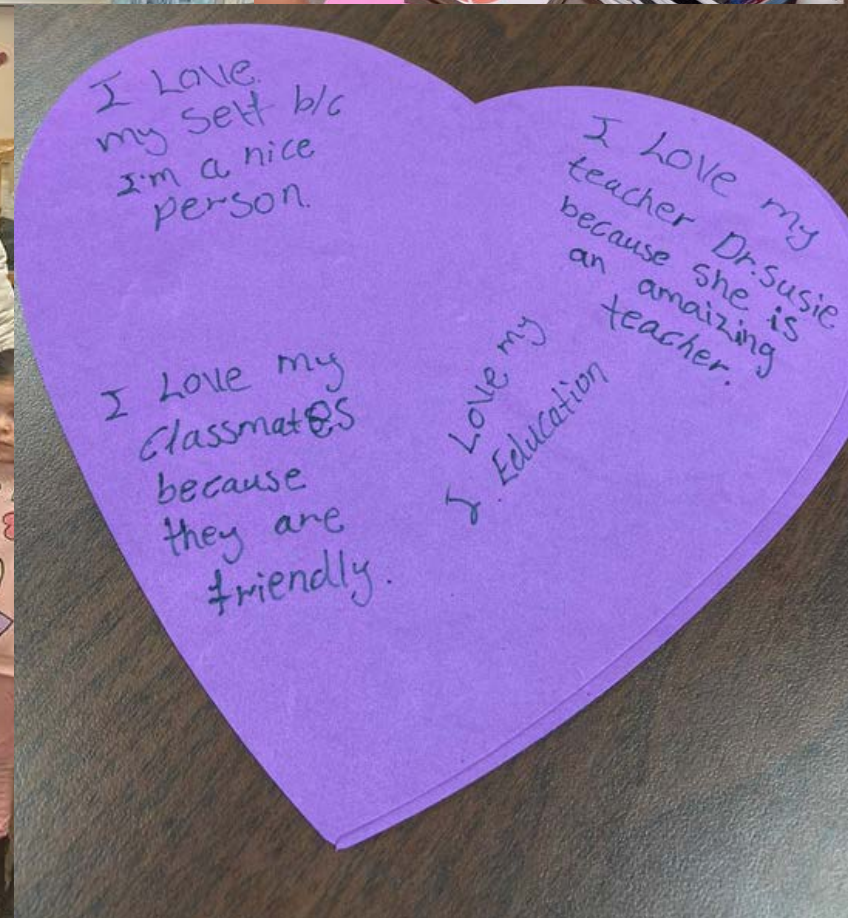 I Love
my self b/c
I'm a nice
person.
I Love my
teacher Dr. Susie
because she is
an amaizing
teacher.
I Love my
classmates
because
they are
friendly.
I Love my
Education